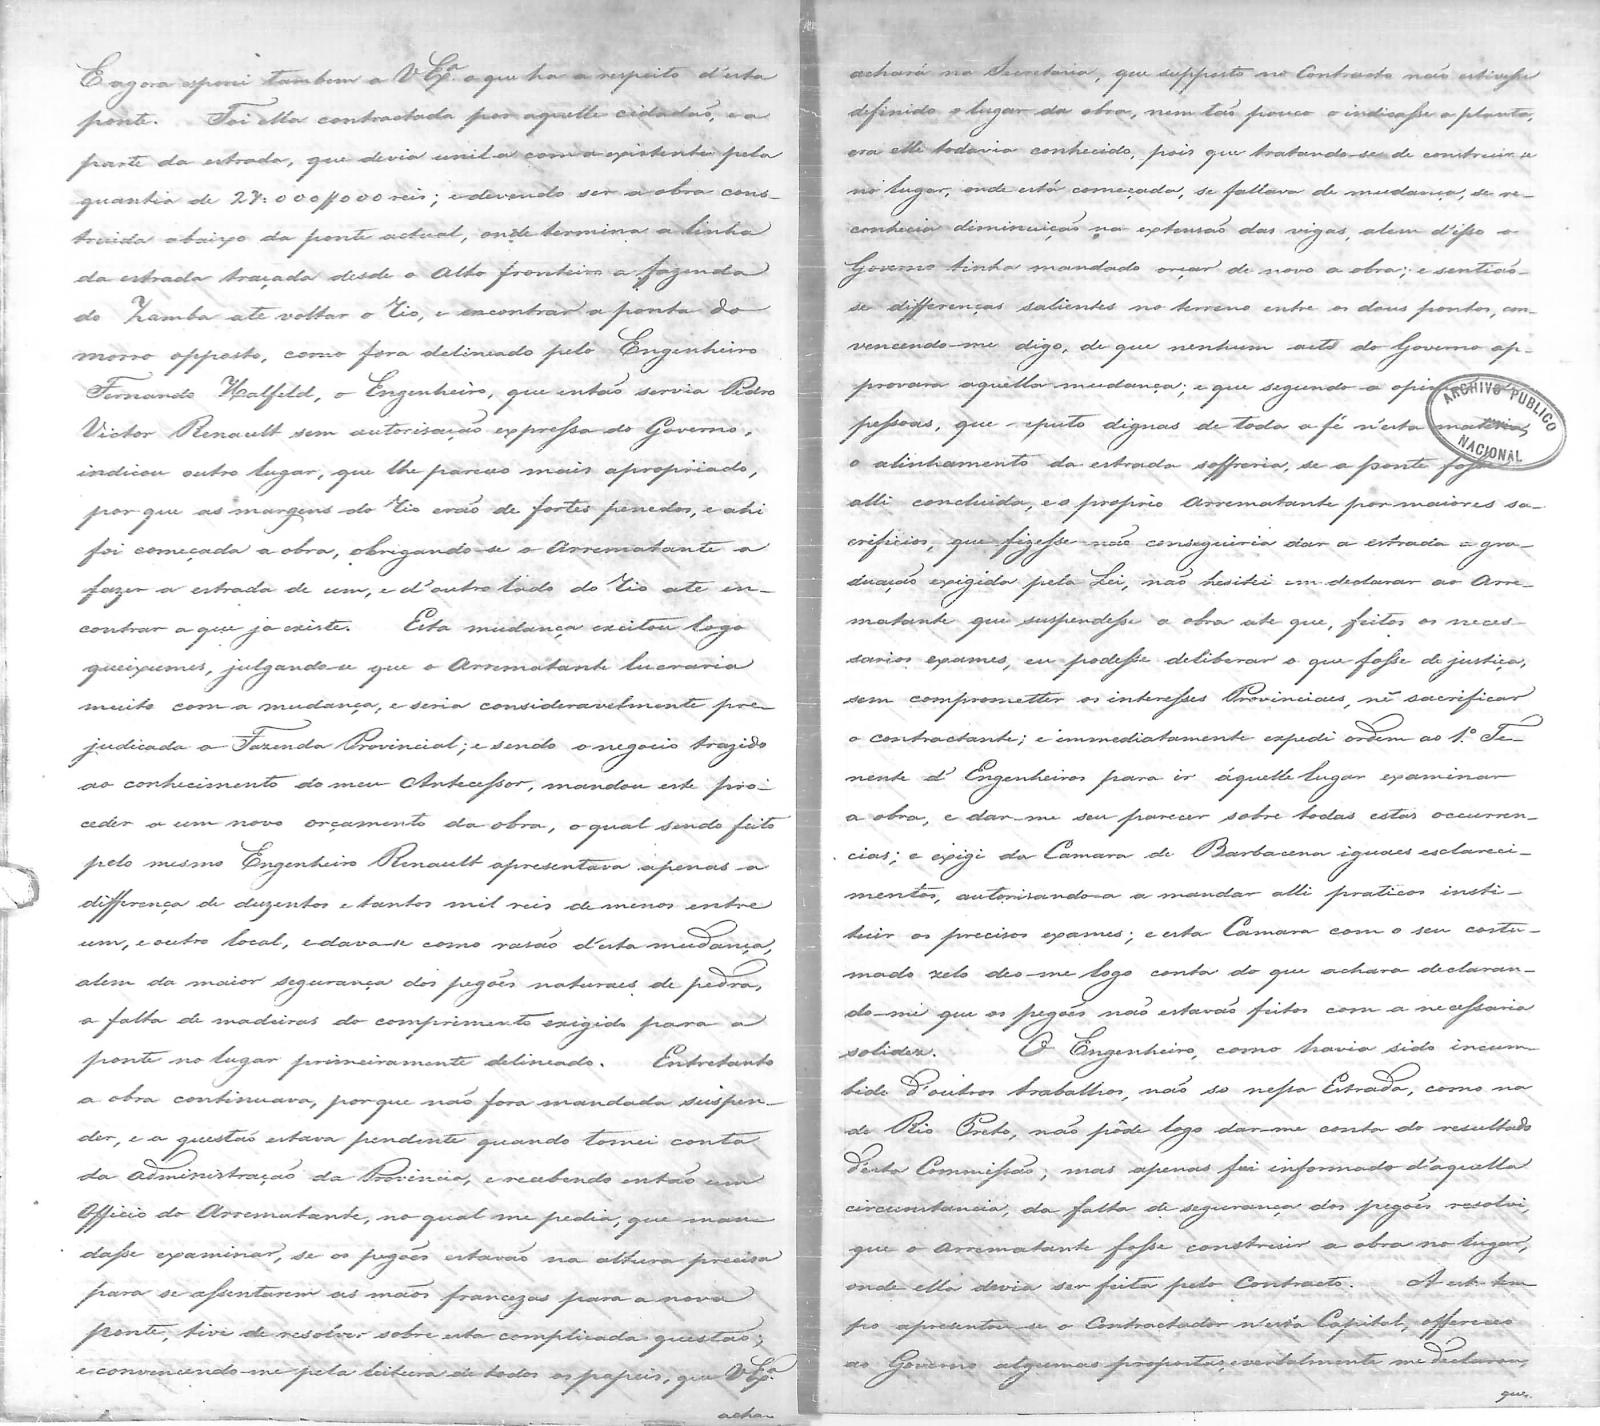 E agora exporei tambem a V Ex.ª o que ha a respeito d'esta
ponte. Foi ella contractada por aquelle cidadaõ, e a
parte da estrada, que devia unil-a com a existente pela
quantia de 27:000//000 reis; e devendo ser a obra cons-
truida abaixo da ponte actual, onde termina a linha
da estrada traçada desde o Alto fronteiro a fazenda
do Zamba até voltar o Rio, e encontrar a ponta do
morro opposto, como fora delineado pelo Engenheiro
Fernando Halfeld, o Engenheiro, que entaõ servia Pedro
Victor Renault sem autorisaçaõ expressa do Governo,
indicou outro lugar, que lhe pareceo mais apropriado,
por que as margens do Rio eraõ de fortes penedos, e ahi
foi começada a obra, obrigando-se o Arrematante a
fazer a estrada de um, e d'outro lado do Rio até en-
contrar a que já existe. Esta mudança excitou logo
queixumes, julgando-se que o Arrematante lucraria
muito com a mudança, e seria consideravelmente pre-
judicada a Fazenda Provincial; e sendo o negocio trazido
ao conhecimento do meu Antecessor, mandou este pro-
ceder a um novo orçamento da obra, o qual sendo feito
pelo mesmo Engenheiro Renault apresentava apenas a
differença de duzentos e tantos mil reis de menos entre
um, e outro local, e dava-se como rasaõ d'esta mudança,
alem da maior segurança dos pegões naturaes de pedra,
a falta de madeiras do comprimento exigido para a
ponte no lugar primeiramente delineado. Entretanto
a obra continuava, porque naõ fora mandada suspen-
der, e a questaõ estava pendente quando tomei conta
da administraçaõ da Provincia, e recebendo entaõ um
Officio do Arrematante, no qual me pedia, que man-
dasse examinar, se os pegões estavaõ na altura precisa
para se assentarem as mãos francezas para a nova
ponte, tive de resolver sobre esta complicada questaõ;
e convencendo-me pela leitura de todos os papeis, que V Ex.ª
acha-
achará na Secretaria, que supposto no Contracto naõ estivesse
definido o lugar da obra, nem taõ pouco o indicasse a planta,
era elle todavia conhecido, pois que tratando-se de construir-se
no lugar, onde está começada, se fallava de mudança, se re-
conhecia diminuiçaõ na extensaõ das vigas, alem d'isso o
Governo tinha mandado orçar de novo a obra; e sentiaõ-
se differenças salientes no terreno entre os dous pontos, con-
vencendo-me digo, de que nenhum acto do Governo ap-
provara aquella mudança; e que segundo a
pessoas, que reputo dignas de toda a fé n'esta materia,
o alinhamento da estrada soffreria, se a ponte fosse
alli concluida, e o proprio Arrematante por maiores sa-
crificios, que fizesse naõ conseguiria dar a estrada a gra-
duaçaõ exigida pela Lei, naõ hesitei em declarar ao Arre-
matante que suspendesse a obra até que, feitos os neces-
sarios exames, eu podesse deliberar o que fosse de justiça,
sem comprometter os interesses Provinciaes, nẽ sacrificar
o contractante; e immediatamente expedi ordem ao 1.º Te-
nente d'Engenheiros para ir áquelle lugar examinar
a obra, e dar-me seu parecer sobre todas estas occurren-
cias; e exigi da Camara de Barbacena iguaes esclareci-
mentos, autorisando-a a mandar alli praticos insti-
tuir os precisos exames; e esta Camara com o seu costu-
mado zelo deo-me logo conta do que achara declaran-
do-me que os pegões naõ estavaõ feitos com a necessaria
solidez. O Engenheiro, como havia sido incum-
bido d'outros trabalhos, naõ só nessa Estrada, como na
do Rio Preto, naõ pôde logo dar-me conta do resultado
d'esta Commissaõ; mas apenas fui informado d'aquella
circunstancia, da falta de segurança dos pegões resolvi,
que o Arrematante fosse construir a obra no lugar,
onde ella devia ser feita pelo Contracto. A este tem-
po apresentou-se o Contractador n'esta Capital, offereceo
ao Governo algumas propostas, e verbalmente me declarou,
que
ARCHIVO PUBLICO
NACIONAL